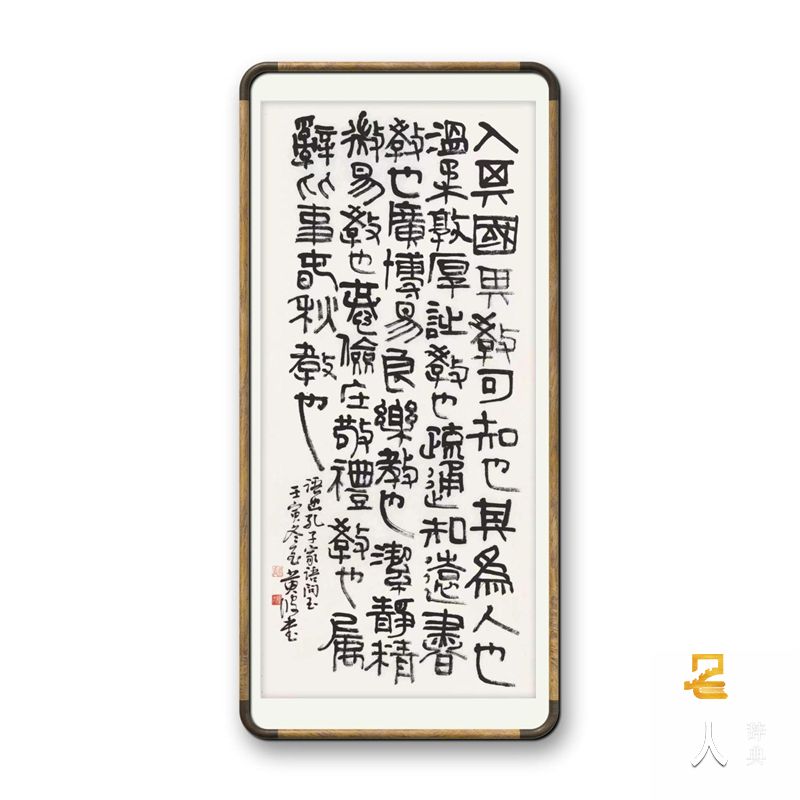 入其國其教可知也其為人也
溫柔敦厚詩教也疏通知遠書
教也廣博易良樂教也潔靜精
微易教也恭儉庄敬禮教也屬
辭比事春秋教也
语出孔子家语问玉
壬寅冬至黄书
人
辞典